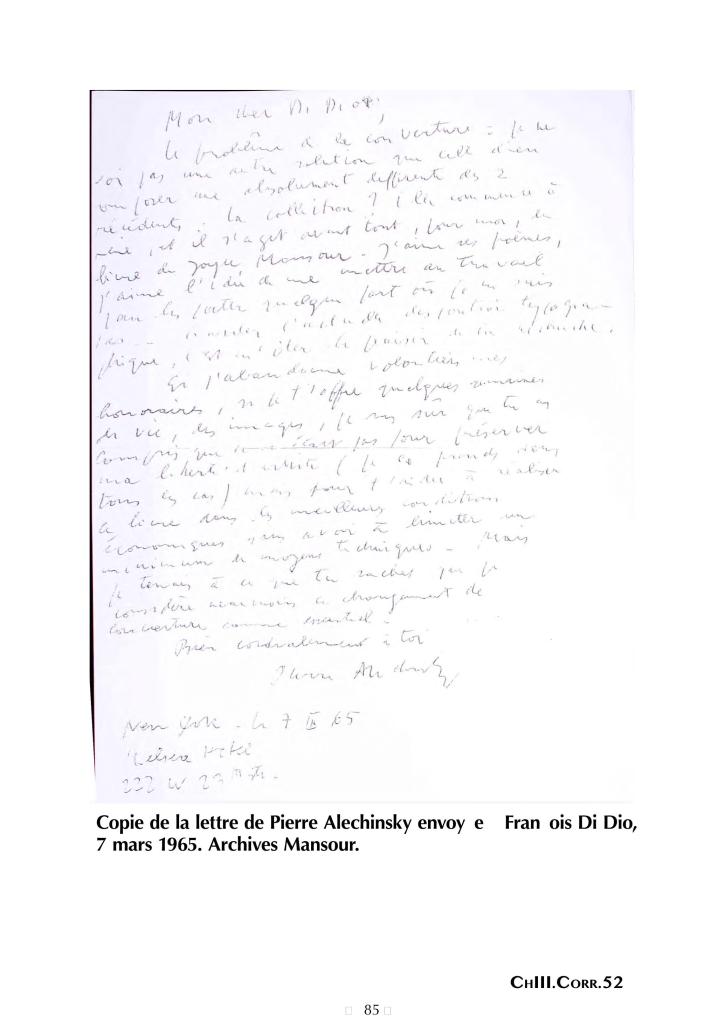 Mon cher Di Dio,
Le problème de la couverture : je ne
vois pas une autre solution que celle d'en
composer une absolument différente des 2
précédents. La collection ? Elle commence à
peine, et il s'agit avant tout, pour moi, du
livre de Joyce Mansour. J'aime ses poèmes,
j'aime l'idée de me mettre au travail
pour les porter quelque part où je ne suis
pas
phique, c'est m'ôter le plaisir de la recherche.
Si j'abandonne volontiers mes
honoraires, si je t'offre quelques semaines
de vie, des images, je suis sûr que tu as
compris que ce n'était pas pour préserver
ma liberté d'artiste (je la prends dans
tous les cas) mais pour t'aider à réaliser
ce livre dans les meilleures conditions
économiques, sans avoir à limiter un
minimum de moyens techniques. Mais
je tenais à ce que tu saches que je
considère néanmoins ce changement de
couverture comme essentiel.
Bien cordialement à toi
Pierre Alechinsky
New York - le 7 III 65
Chelsea Hotel
222 W 23
Copie de la lettre de Pierre Alechinsky envoy e Fran ois Di Dio,
7 mars 1965. Archives Mansour.
CHIII.CORR.52
85